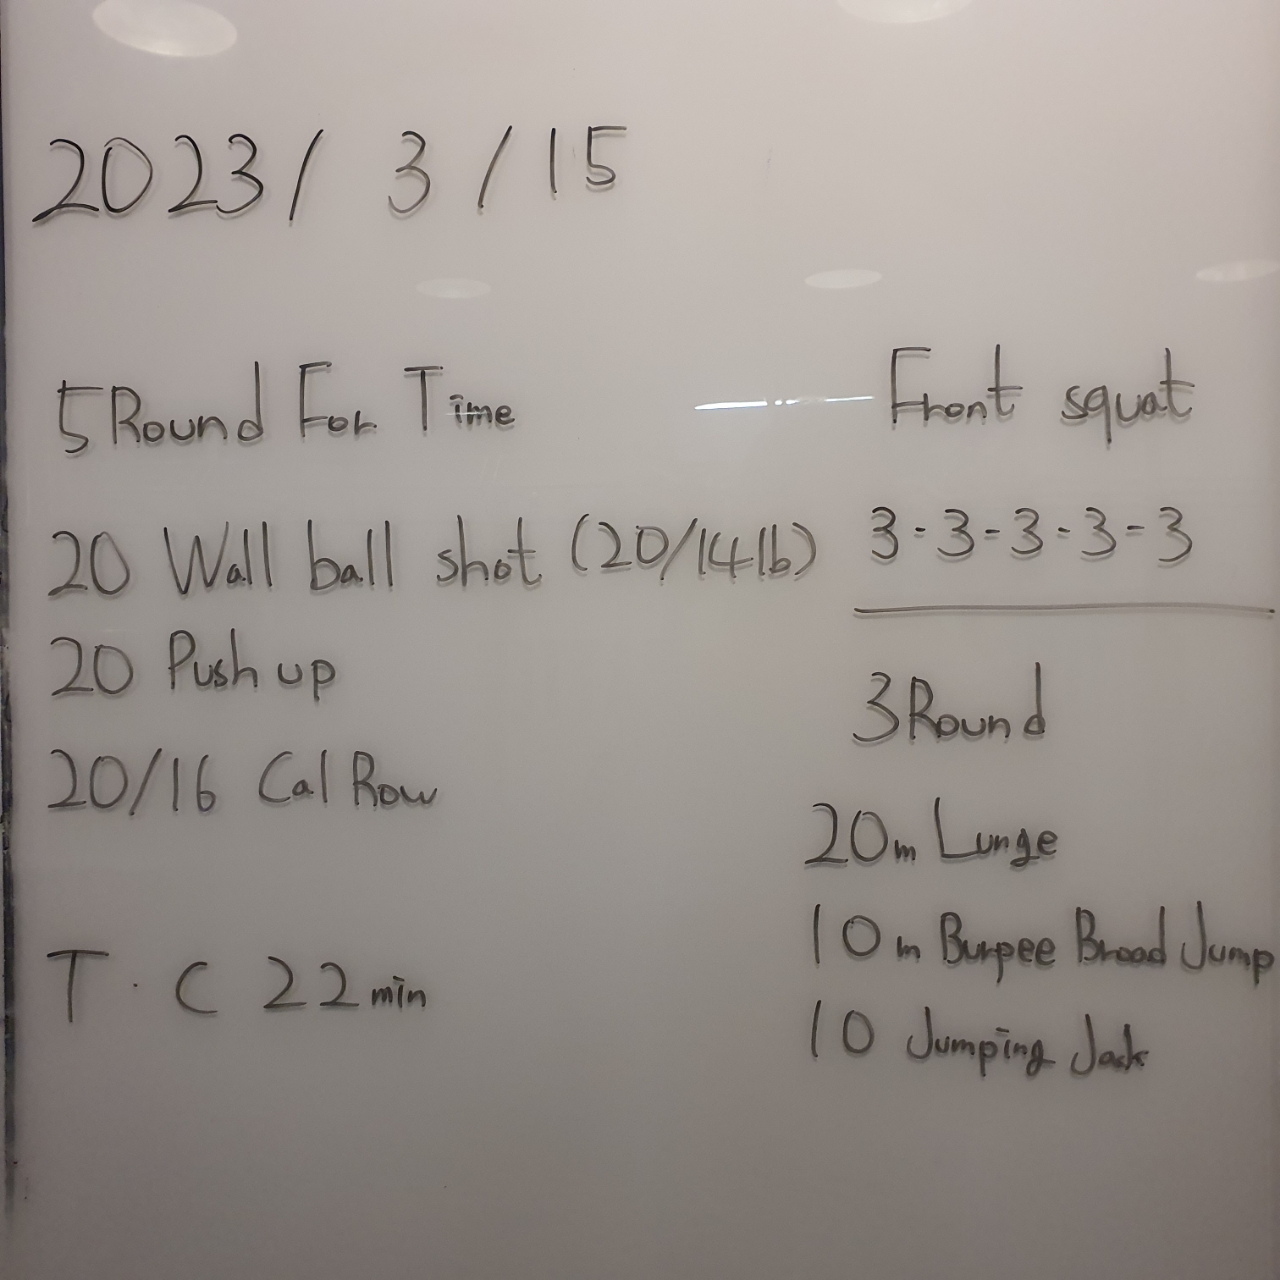 2023/ 3 / 15
5 Round For Time
20 Wall ball shot (20/14lb)
20 Push up
20/16 Cal Row
T.C 22min
Front squat
3-3-3-3-3
3 Round
20m Lunge
10m Burpee Broad Jump
10 Jumping Jack